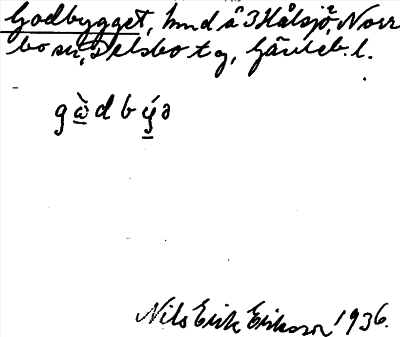 Godbygget, hmd å 3 Hålsjö, Norr
bo sn, Delsbo tg, Gävleb. l.
gὼdbýə
Nils Erik Eriksson 1936.